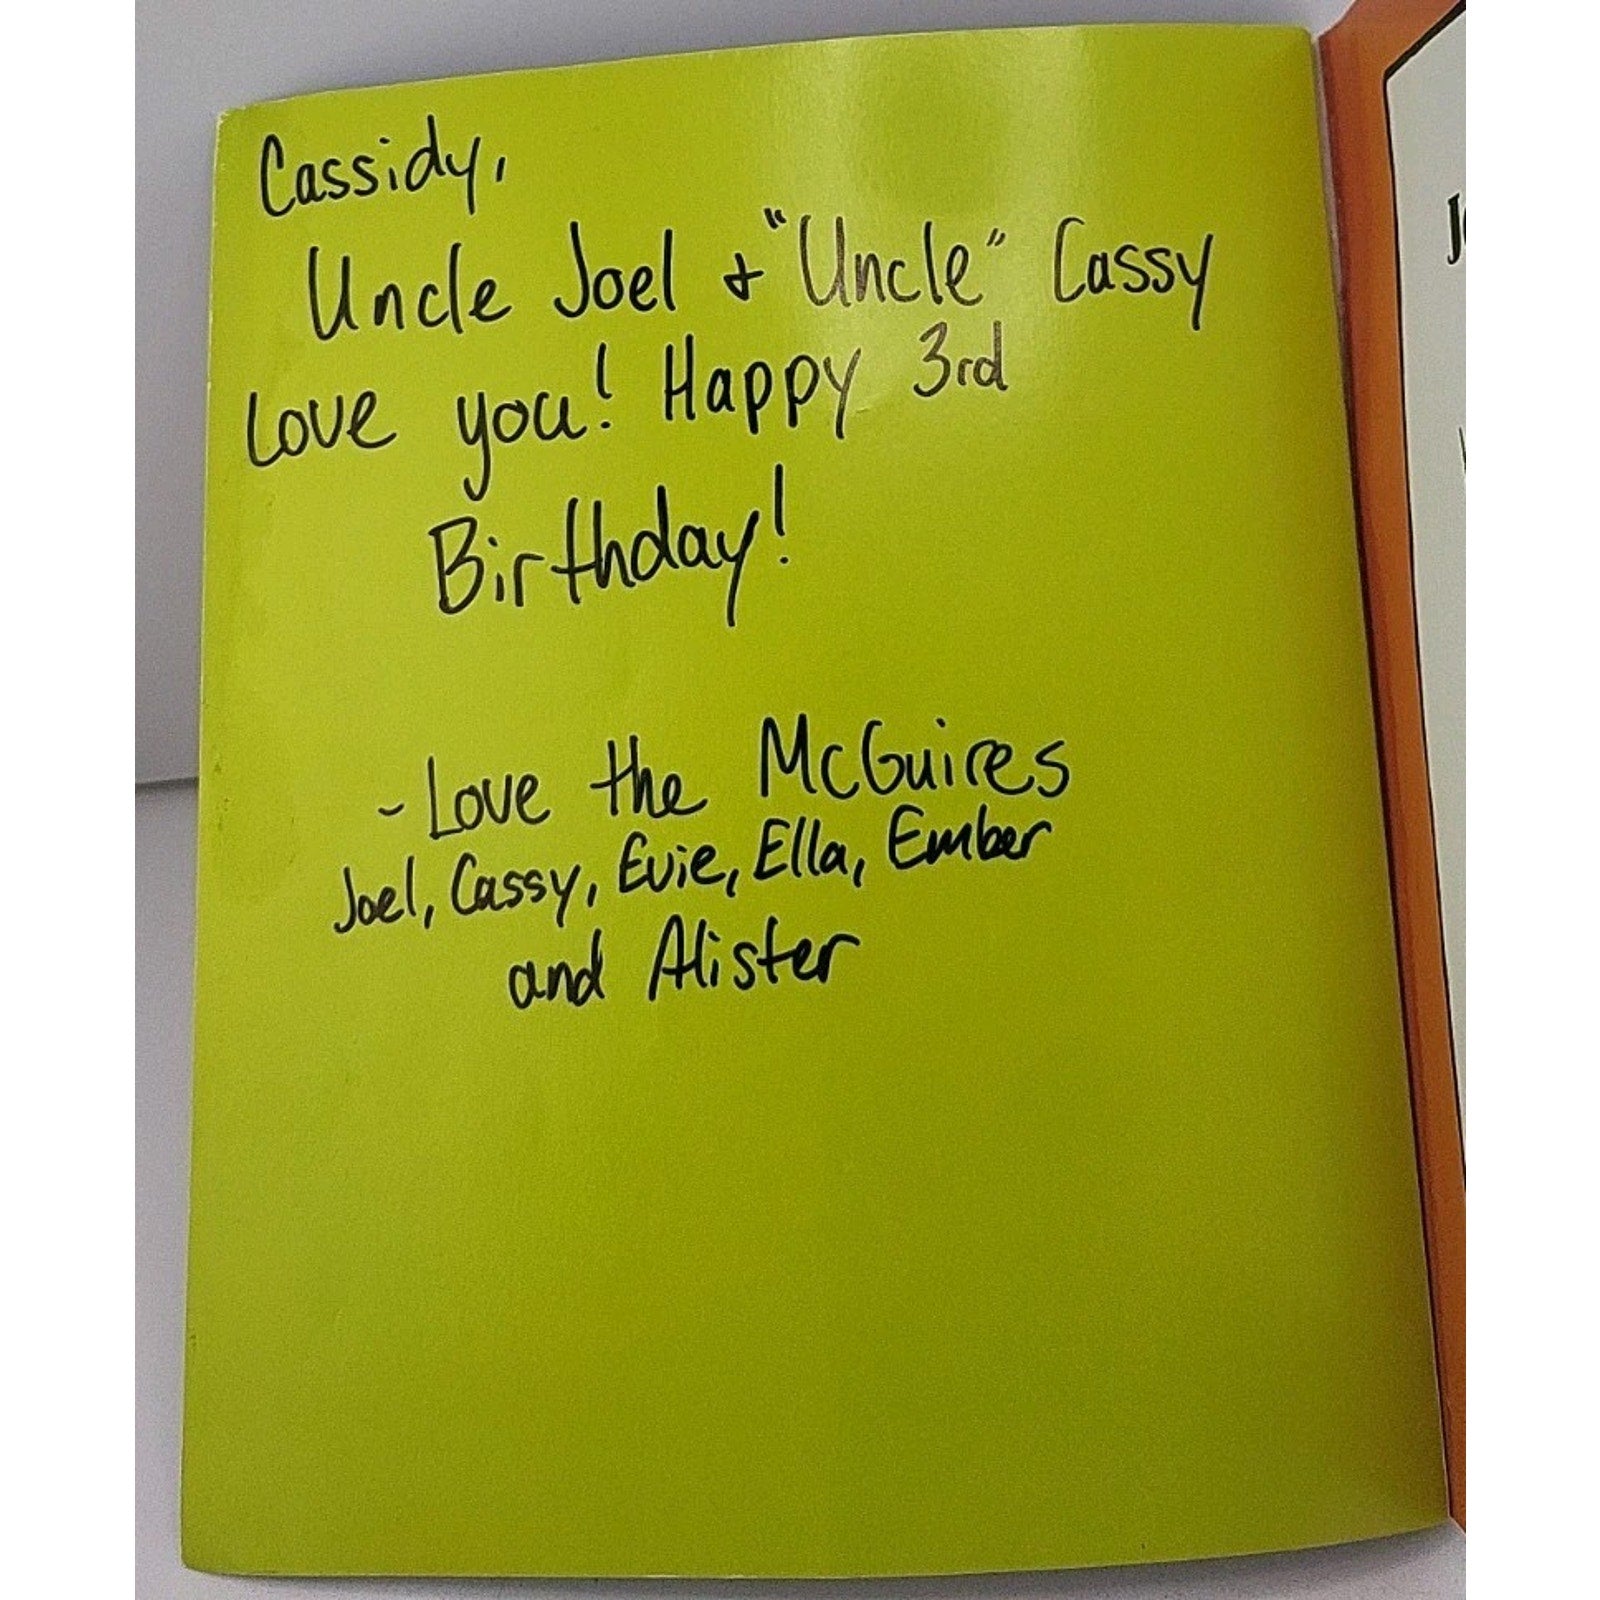 Cassidy,
Uncle Joel & "Uncle" Cassy
Love you! Happy 3rd
Birthday!
- Love the McGuires
Joel, Cassy, Evie, Ella, Ember
and Alister